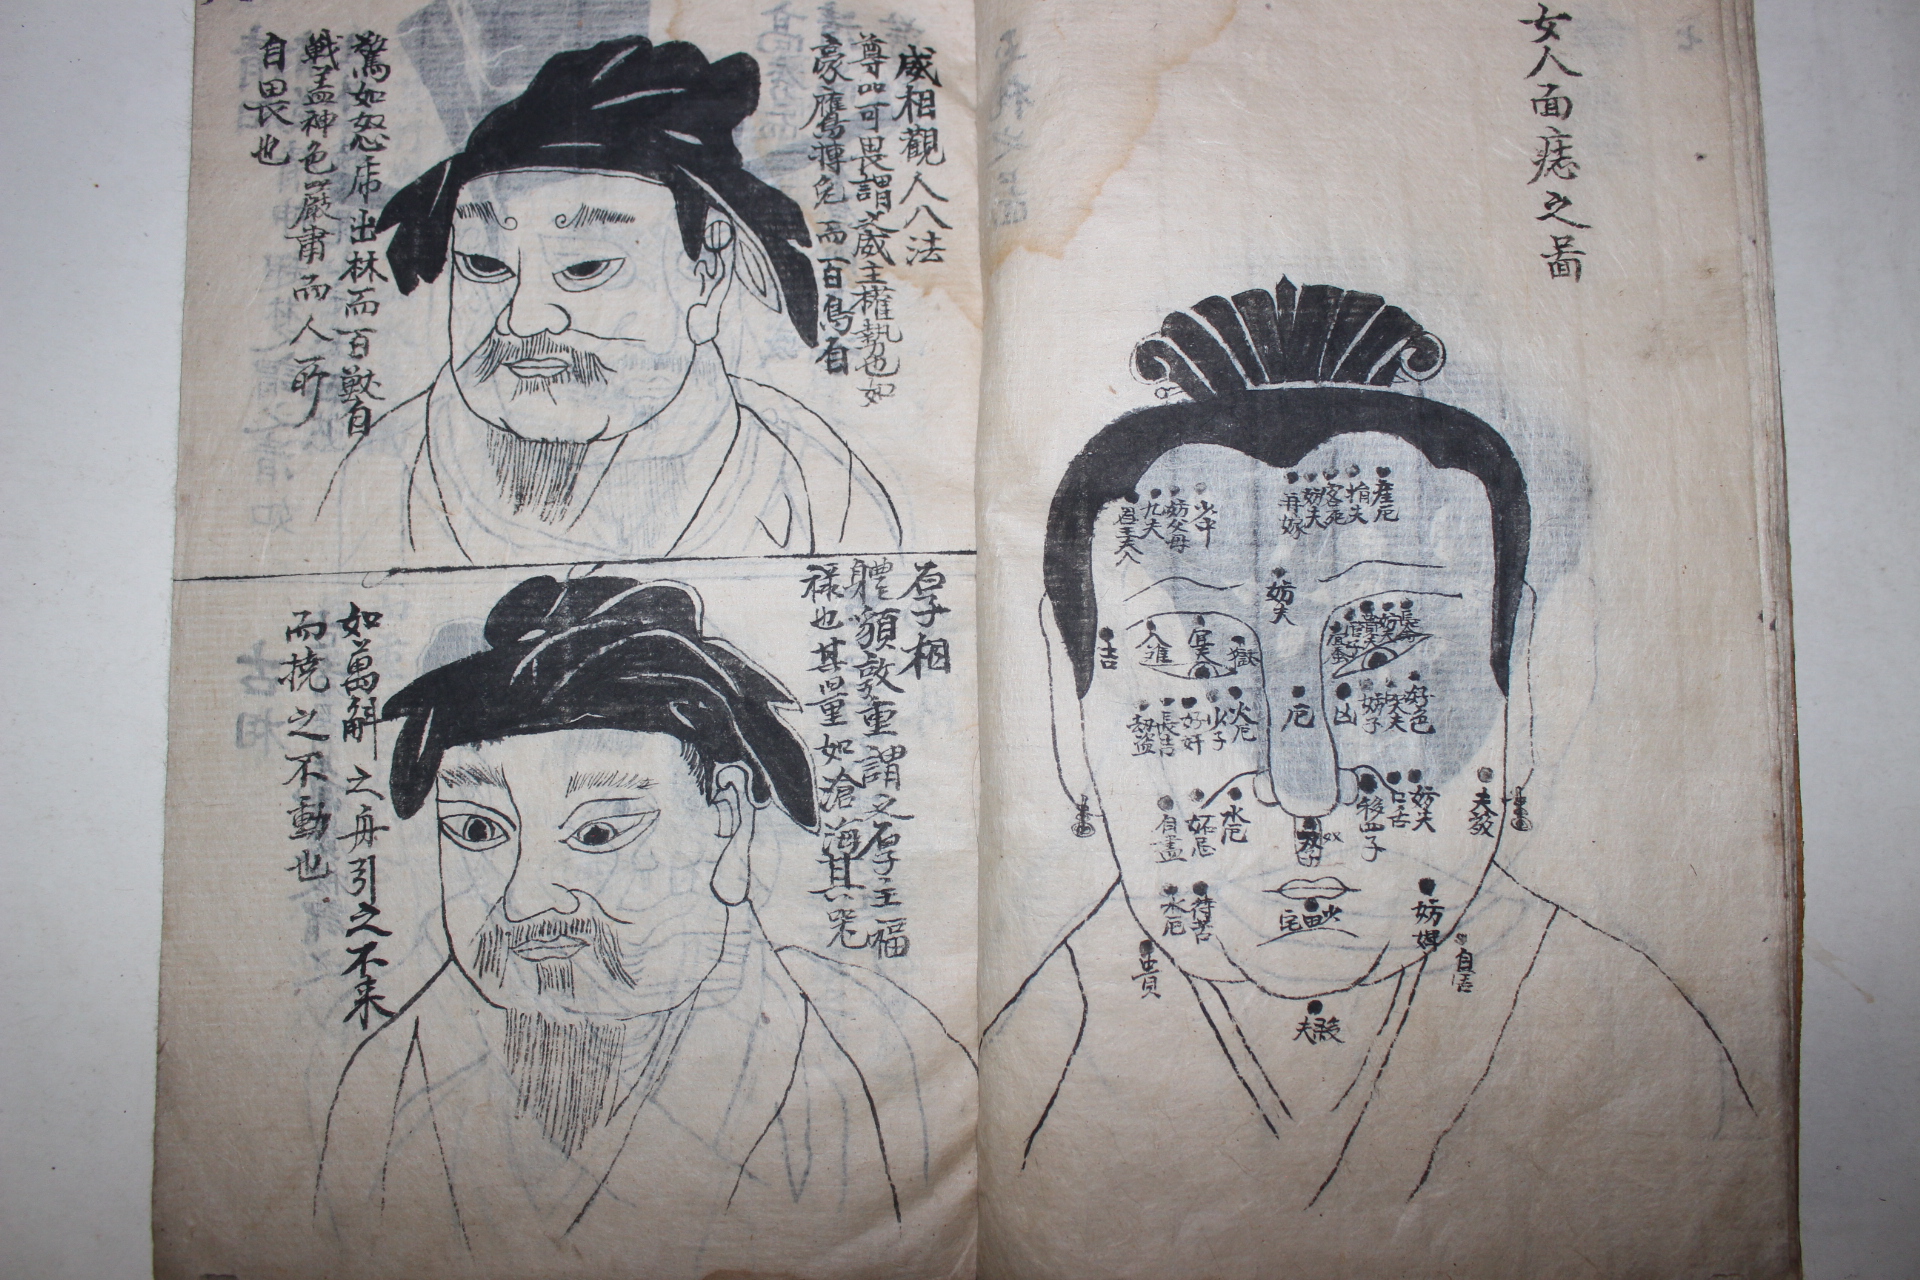 女人面痣之圖
産厄
損夫
客死
妨夫
再嫁
少中
妨父母
九夫
妨夫
長命
妨夫
貴夫
吉
入進
獄
好色
夫夫
妨子
凶
厄
火厄
少子
好奸
長吉
劫盗
妨夫
口舌
四子
夫殺
水厄
妬忌
自盡
水厄
宅
貴
自害
殺夫
威相觀人八法
尊品可畏謂之威主權勢也如
豪鷹搏兎而百鳥自
驚如怒虎出林而百獸自
戦盖神色嚴肅而人所
自畏也
厚相
體貌敦重謂之厚主福
禄也其量如滄海其器
如萬斛之舟引之不来
而撓之不動也